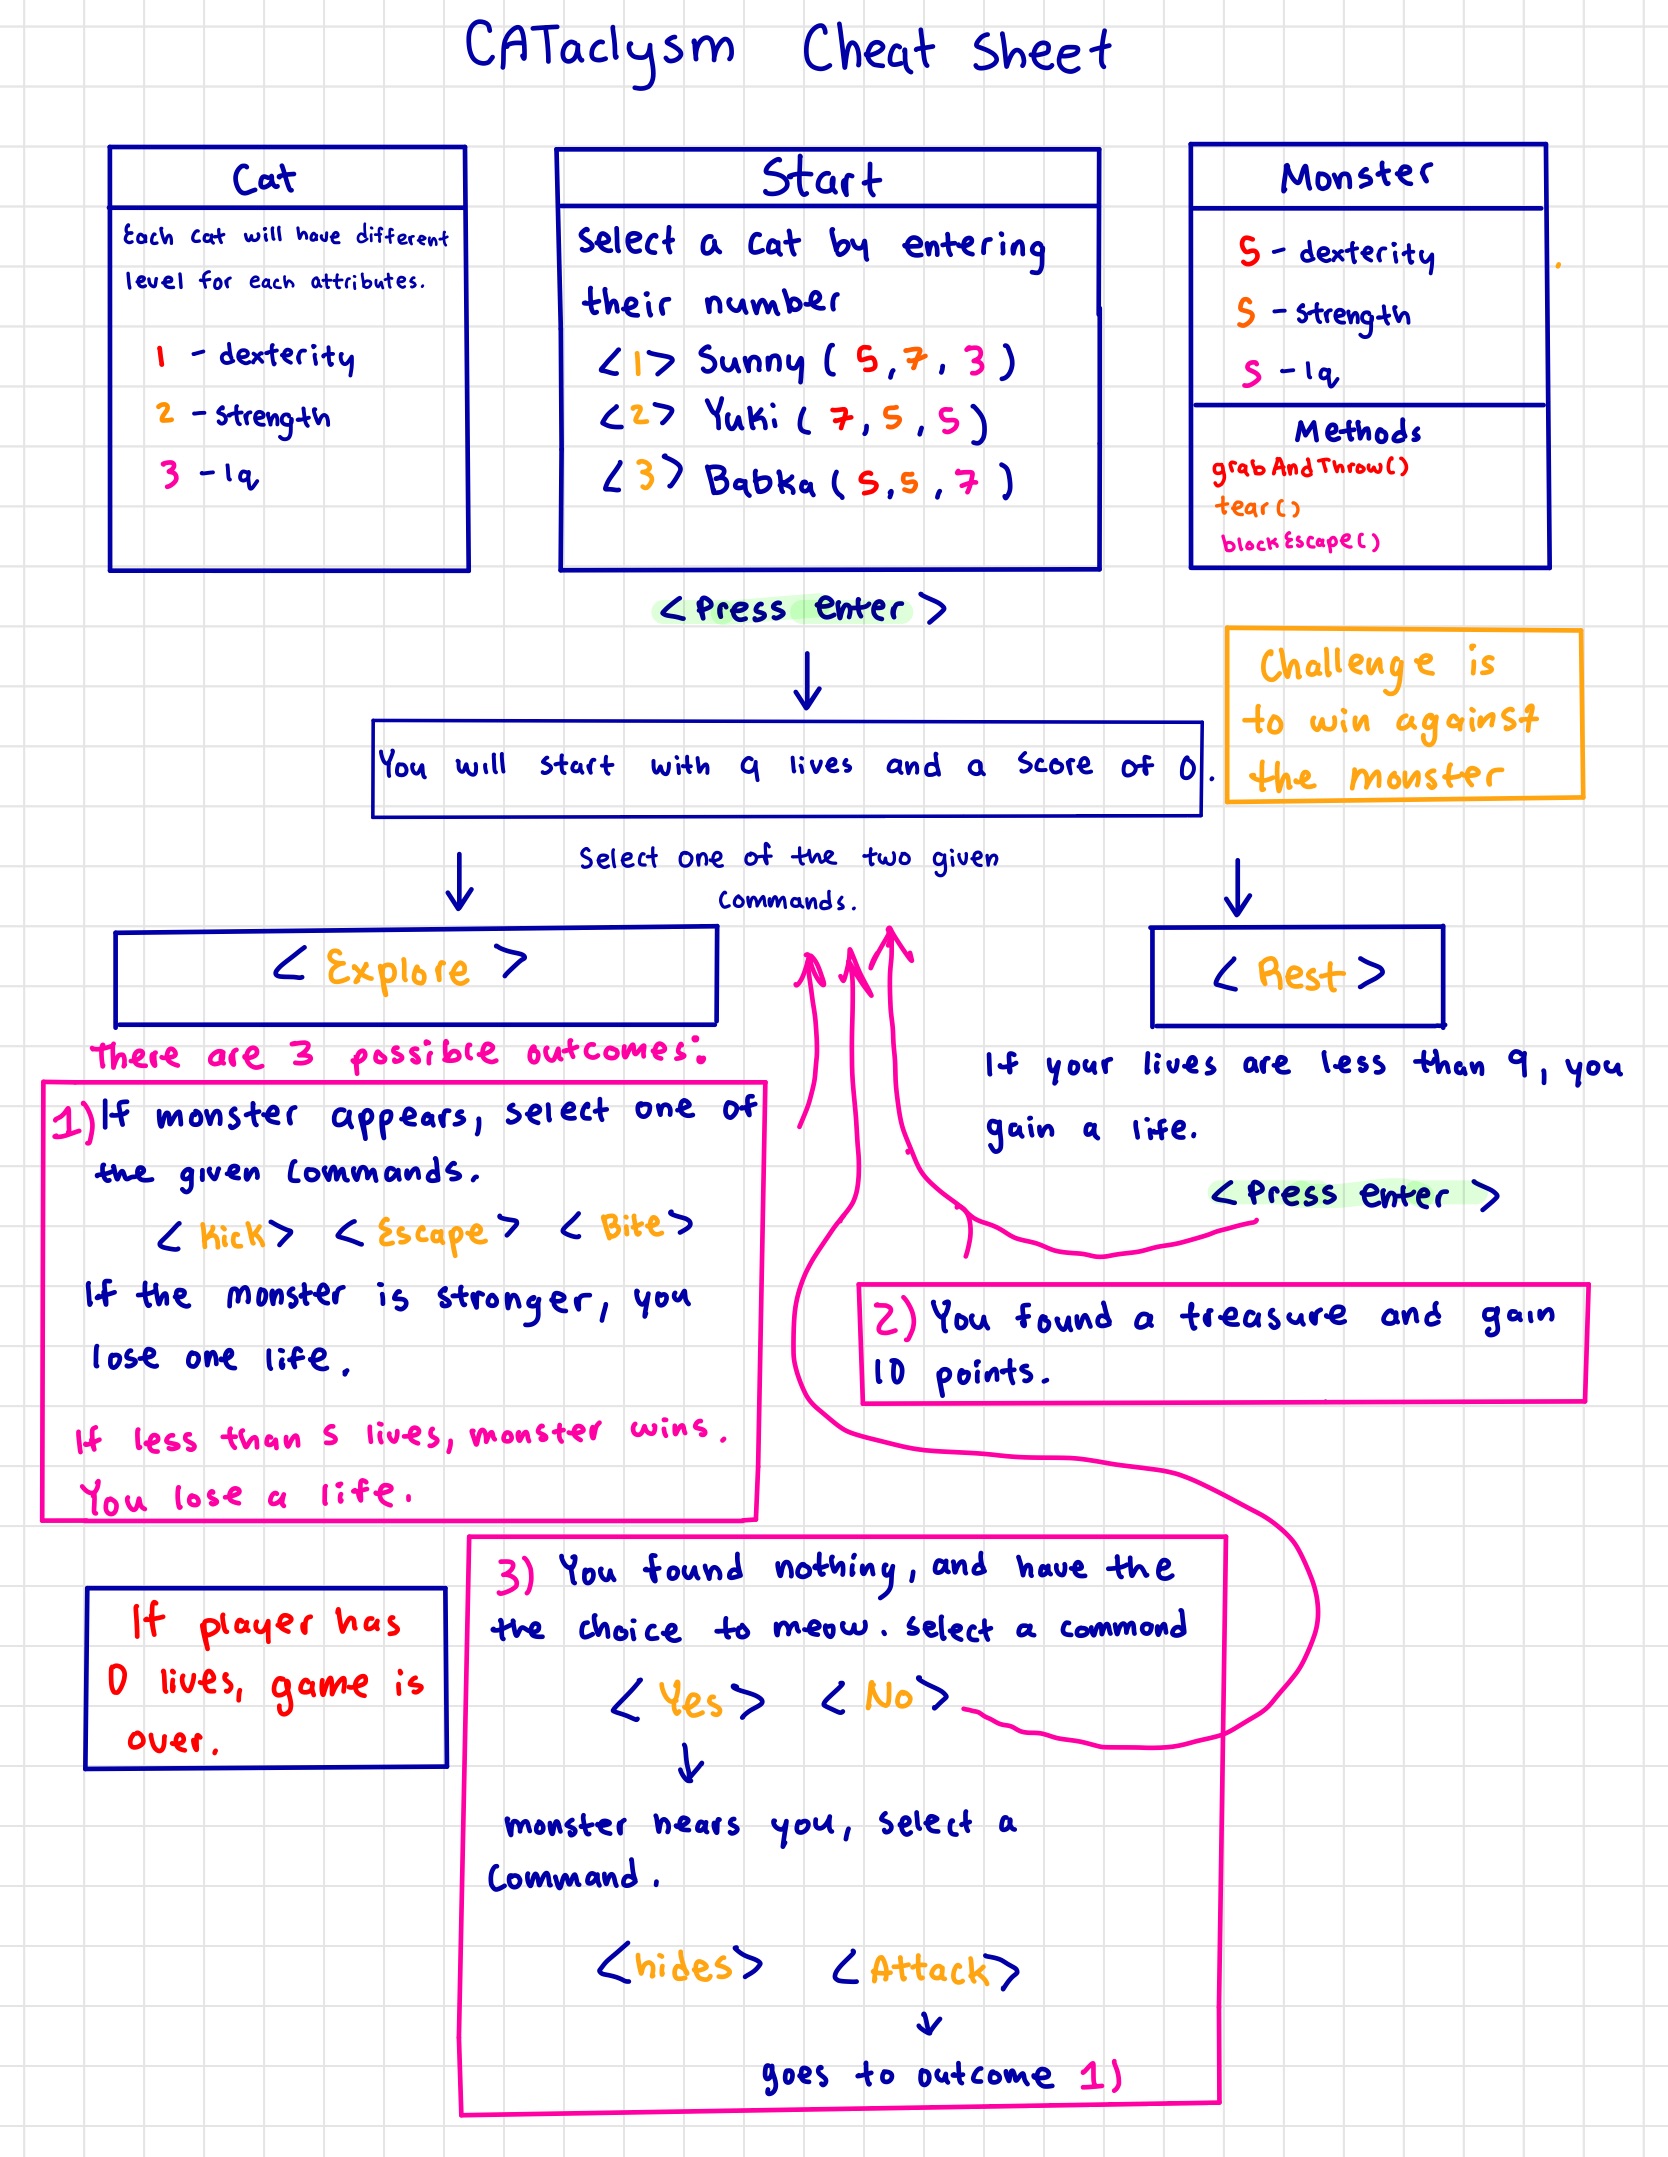 CATaclysm Cheat Sheet
Cat
Each cat will have different
level for each attributes.
1 - dexterity
2 - strength
3 - Iq
Start
select a cat by entering
their number
<1> Sunny (5,7,3)
<2> Yuki (7,5,5)
<3> Babka (5,5,7)
Monster
5 - dexterity
5 - strength
5 - Iq
Methods
grabAndThrow()
tear()
blockEscape()
<Press enter>
Challenge is
to win against
the monster
You will start with 9 lives and a score of 0.
Select one of the two given
commands.
<Explore>
<Rest>
There are 3 possible outcomes:
1) If monster appears, select one of
the given commands.
<Kick> <Escape> <Bite>
If the monster is stronger, you
lose one life.
If less than 5 lives, monster wins.
You lose a life.
If your lives are less than 9, you
gain a life.
<Press enter>
2) You found a treasure and gain
10 points.
3) You found nothing, and have the
the choice to meow. select a command
<Yes> <No>
monster hears you, select a
command.
<hides> <Attack>
goes to outcome 1)
If player has
0 lives, game is
over.